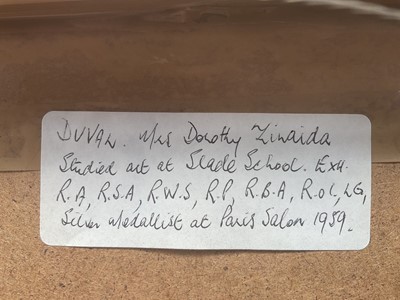 DUVAL. Mrs Dorothy Zinaida
Studied art at Slade School. Exh.
R.A, R.S.A, R.W.S, R.P, R.B.A, R.O.I, L.G,
Silver Medallist at Paris Salon 1959.